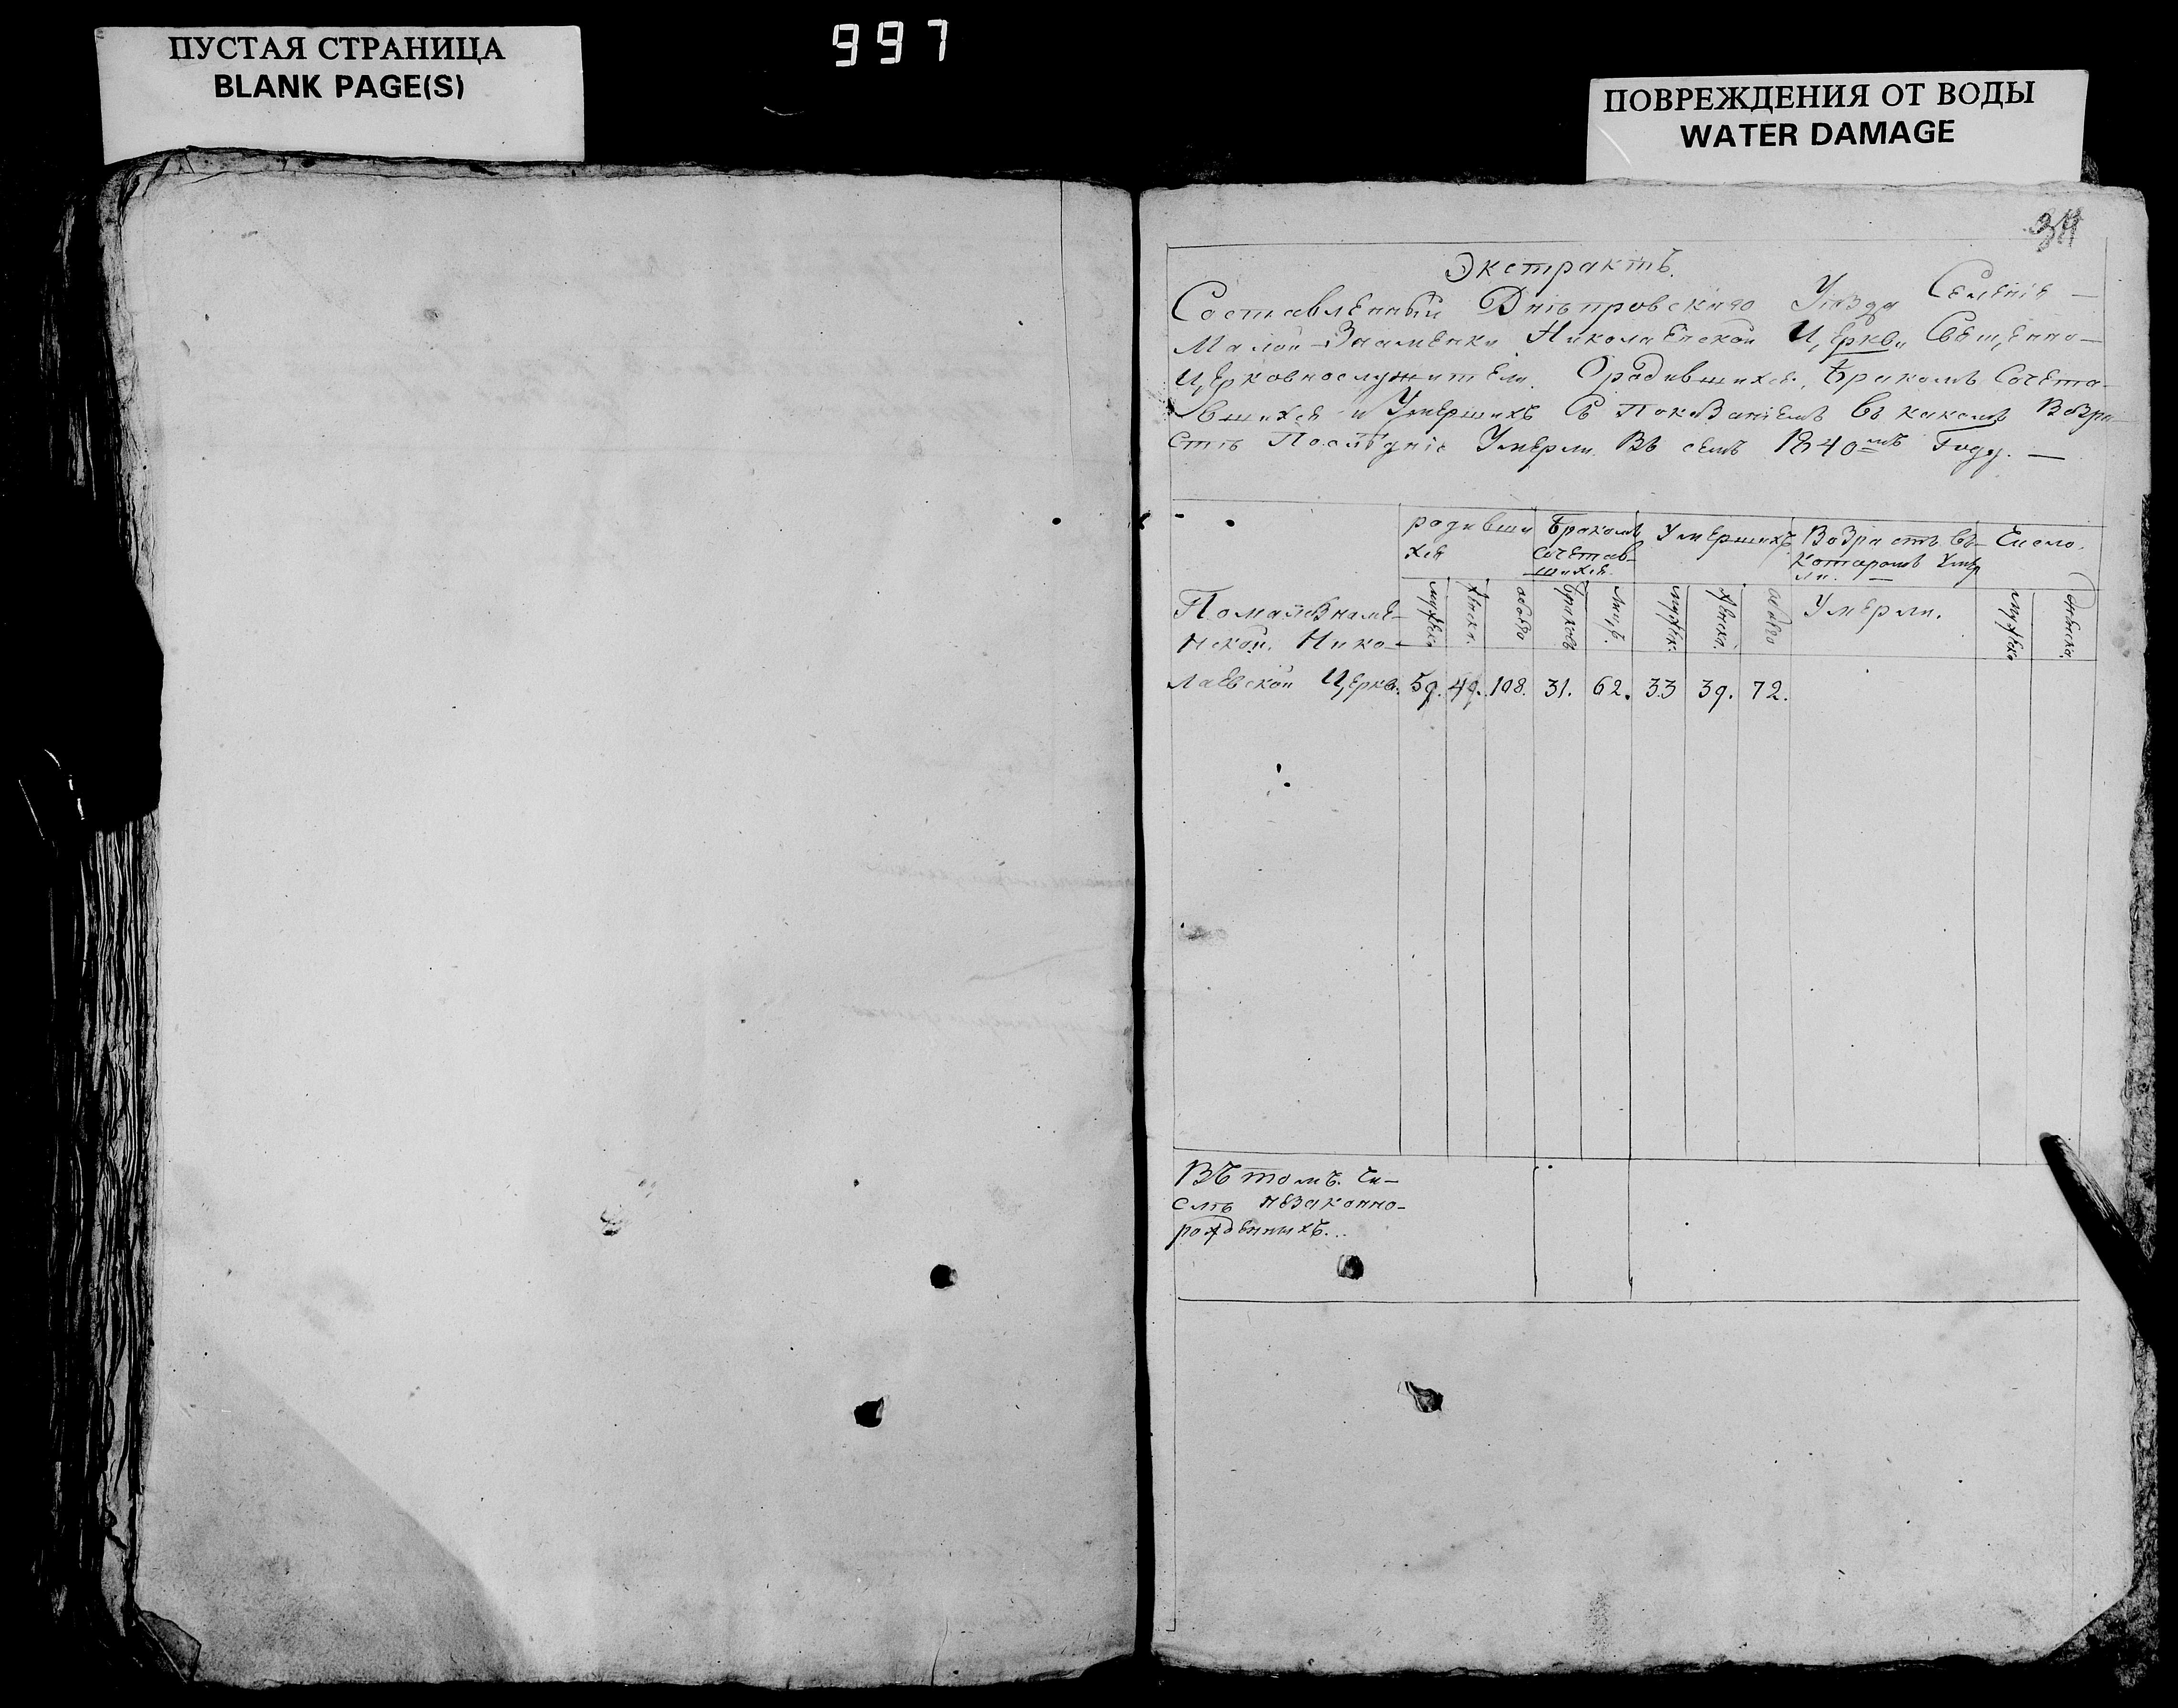 ПУСТАЯ СТРАНИЦА
BLANK PAGE(S)
997
ПОВРЕЖДЕНИЯ ОТ ВОДЫ
WATER DAMAGE
Экстрактъ.
Составленный Днѣпровскаго Уѣзда Селенія —
Малой-Знаменки Николаевской Церкви Священно-
Церковнослужители. О родившихся, Бракомъ Сочета-
вшихся и Умершихъ Съ Показаніемъ въ какомъ Возра-
стѣ Послѣдніе Умерли. Въ семъ 1840мъ Году. —
родивши
хся
Бракомъ
сочетав-
шихся.
Умершихъ
Возрастъ въ
которомъ Умер
ли. —
Число.
По малознаме-
нской. Нико-
лаевской Церкв.
мужеска
женска.
обоего
браковъ
лицъ.
мужеск.
женска.
обоего
Умерли.
мужеска
женска.
59. 49. 108. 31. 62. 33 39. 72.
Въ томъ. Чи-
слѣ незаконно-
рожденныхъ...